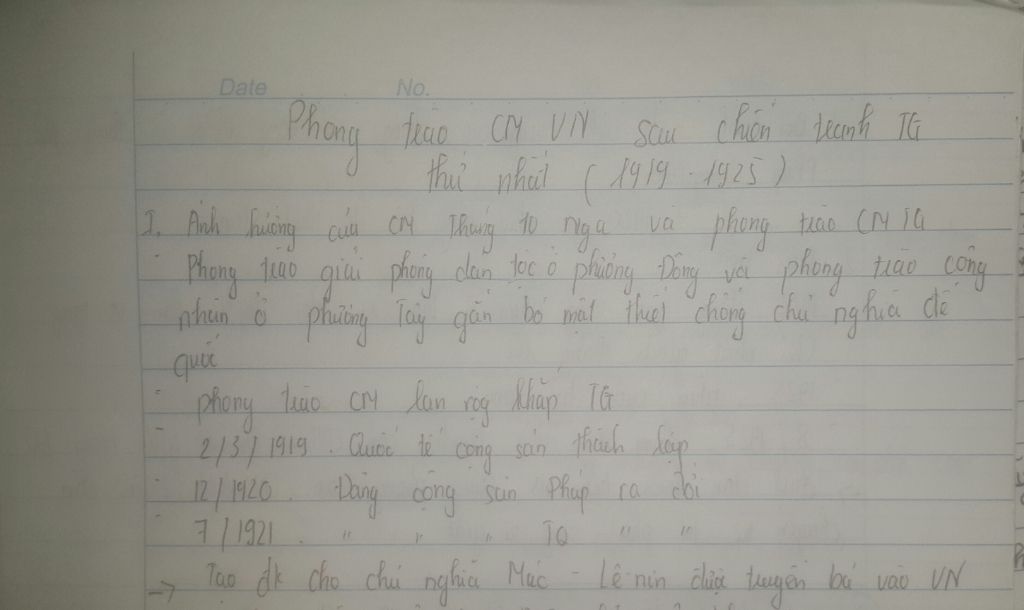 Date No.
Phong trào CM VN sau chiến tranh TG
thứ nhất ( 1919 - 1925 )
I. Ảnh hưởng của CM tháng 10 Nga và phong trào CM TG
- Phong trào giải phóng dân tộc ở phương Đông và phong trào công
nhân ở phương Tây gắn bó mật thiết chống chủ nghĩa đế
quốc
- phong trào CM lan rộg khắp TG
- 2/3/1919 . Quốc tế cộng sản thành lập
- 12/1920 . Đảng cộng sản Pháp ra đời
- 7/1921 . " " " TQ " "
-> Tạo đk cho chủ nghĩa Mác - Lê-nin được truyền bá vào VN